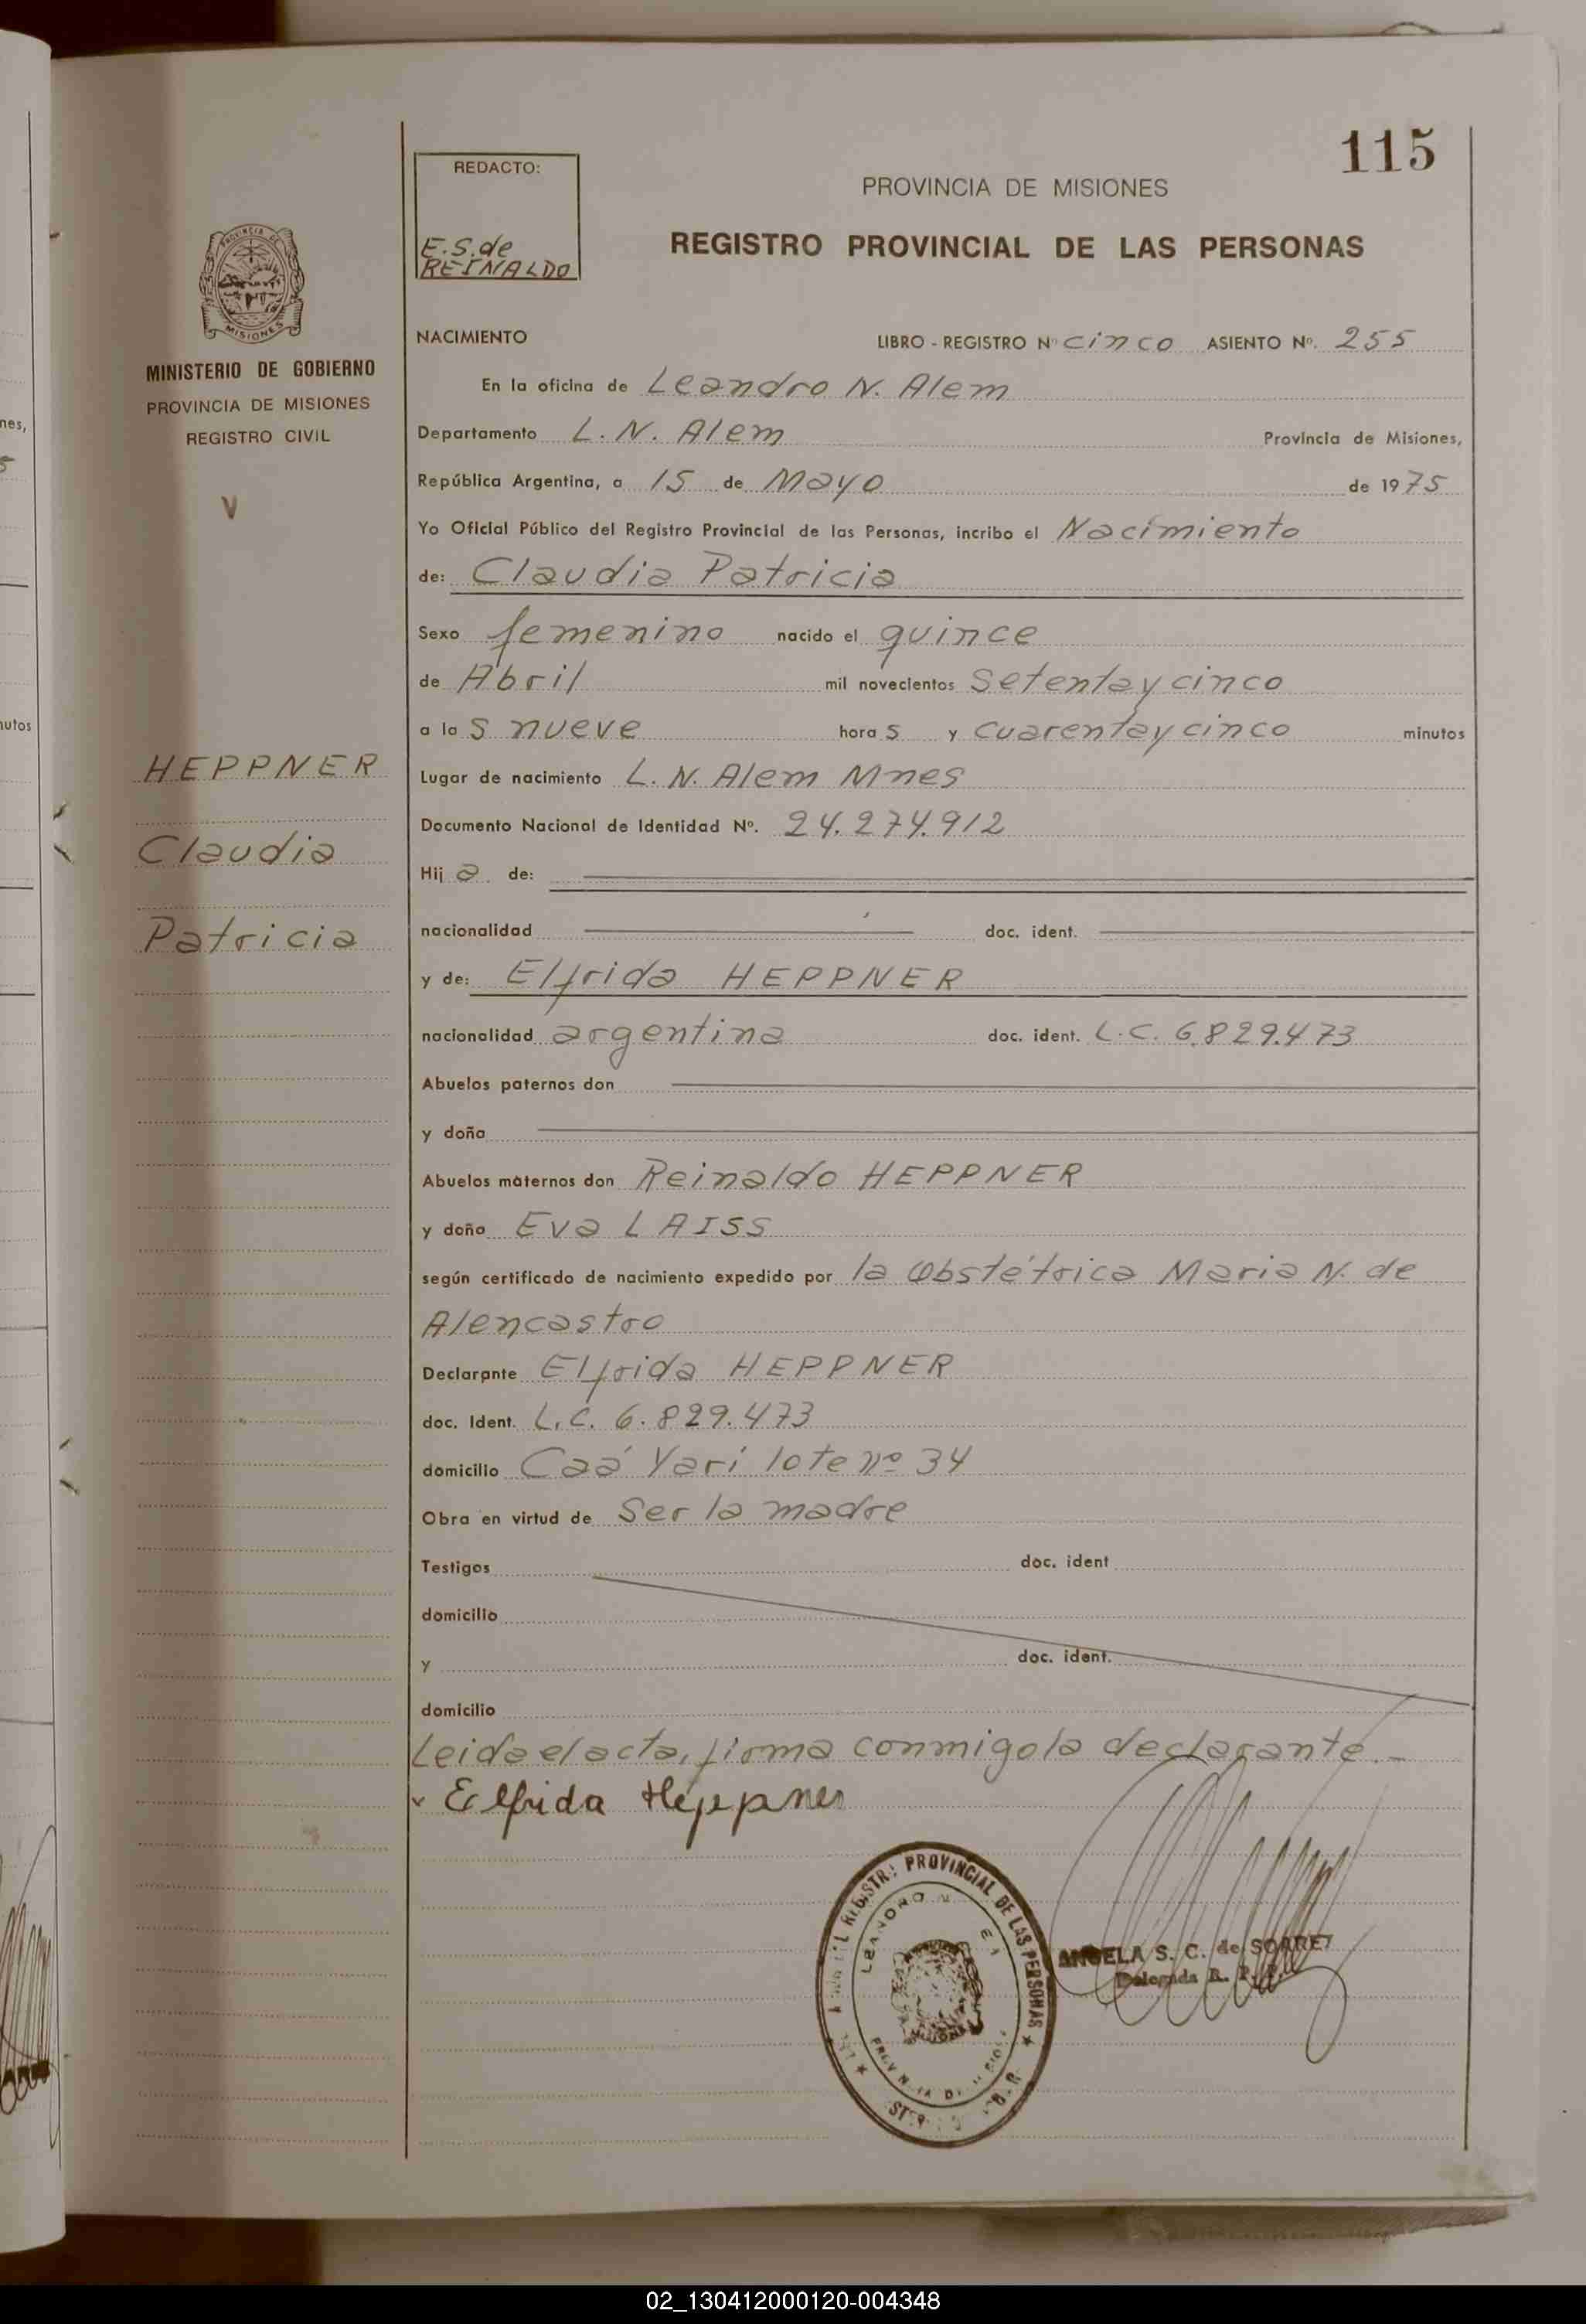 115
REDACTO:
E.S. de
REINALDO
PROVINCIA DE MISIONES
REGISTRO PROVINCIAL DE LAS PERSONAS
MISIONES
MINISTERIO DE GOBIERNO
PROVINCIA DE MISIONES
REGISTRO CIVIL
V
HEPPNER
Claudia
Patricia
NACIMIENTO LIBRO - REGISTRO Nº cinco ASIENTO Nº. 255
En la oficina de Leandro N. Alem
Departamento L. N. Alem Provincia de Misiones,
República Argentina, a 15 de Mayo de 1975
Yo Oficial Público del Registro Provincial de las Personas, incribo el Nacimiento
de: Claudia Patricia
Sexo femenino nacido el quince
de Abril mil novecientos Setenta y cinco
a las nueve horas y cuarenta y cinco minutos
Lugar de nacimiento L. N. Alem Mnes
Documento Nacional de Identidad Nº. 24.274.912
Hija de:
nacionalidad doc. ident.
y de: Elfrida HEPPNER
nacionalidad argentina doc. ident. L.C. 6.829.473
Abuelos paternos don
y doña
Abuelos maternos don Reinaldo HEPPNER
y doña Eva LAISS
según certificado de nacimiento expedido por la Obstétrica Maria N. de
Alencastro
Declarante Elfrida HEPPNER
doc. Ident. L.C. 6.829.473
domicilio Caá Yarí lote nº 34
Obra en virtud de Ser la madre
Testigos doc. ident
domicilio
y doc. ident.
domicilio
Leida el acta, firma conmigo la declarante.-
Elfrida Heppner
PROVINCIAL DE LAS PERSONAS
LEANDRO N
ANGELA S. C. de SORRET
Delegada R. P. P.
nes,
5
nutos
02_130412000120-004348